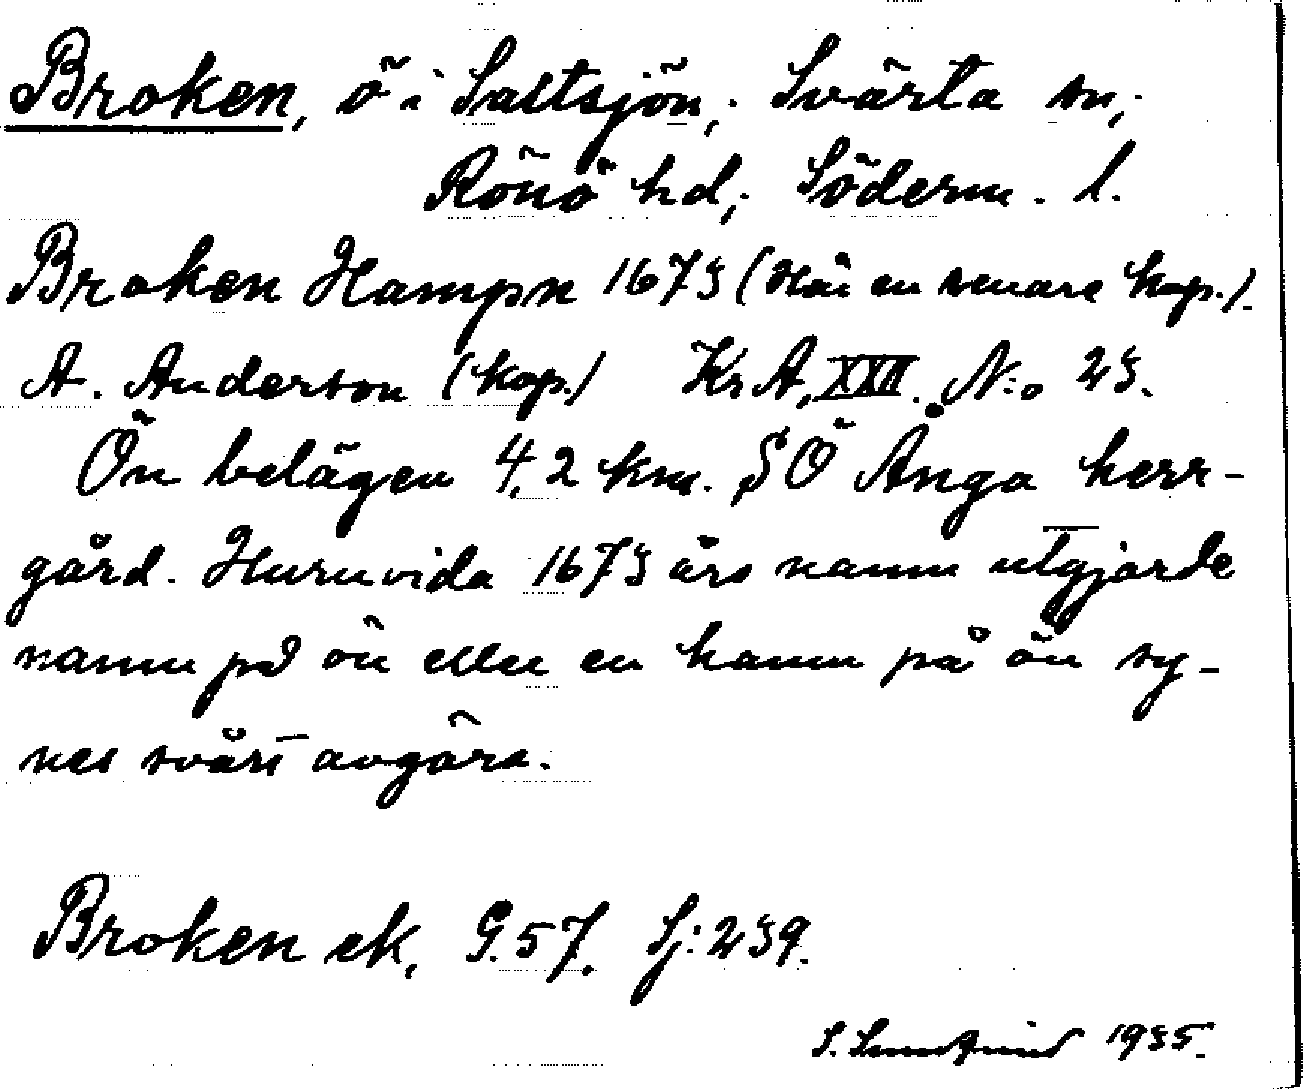 Broken, ö i Saltsjön; Svärta sn;
Rönö hd; Söderm. l.
Broken Hampn 1673 (Här en senare kop.).
A. Anderson (kop.) KrA, XXII. N:o 23.
Ön belägen 4,2 km. SÖ Ånga herr-
gård. Huruvida 1673 års namn utgjorde
namn på ön eller en hamn på ön sy-
nes svårt avgöra.
Broken ek, G. 57. Sj: 239.
S. 1935.